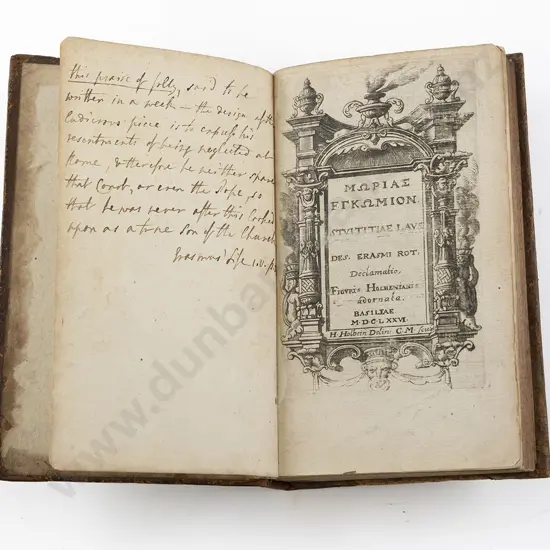 this praise of folly, said to be
written in a week — the design of this
Ludicrous piece is to express his
resentments of being neglected at
Rome, & therefore he neither spares
that Court, or even the Pope, so
that he was never after this Looked
upon as a true Son of the Church
Erasmus' Life
ΜΩΡΙΑΣ
ΕΓΚΩΜΙΟΝ
STULTITIAE LAUS
DES. ERASMI ROT.
Declamatio,
FIGURIS HOLBENIANIS
adornata.
BASILEAE
M.DC.LXXVI.
H. Holbein Delin: C.M. Sculp
www.dunbar